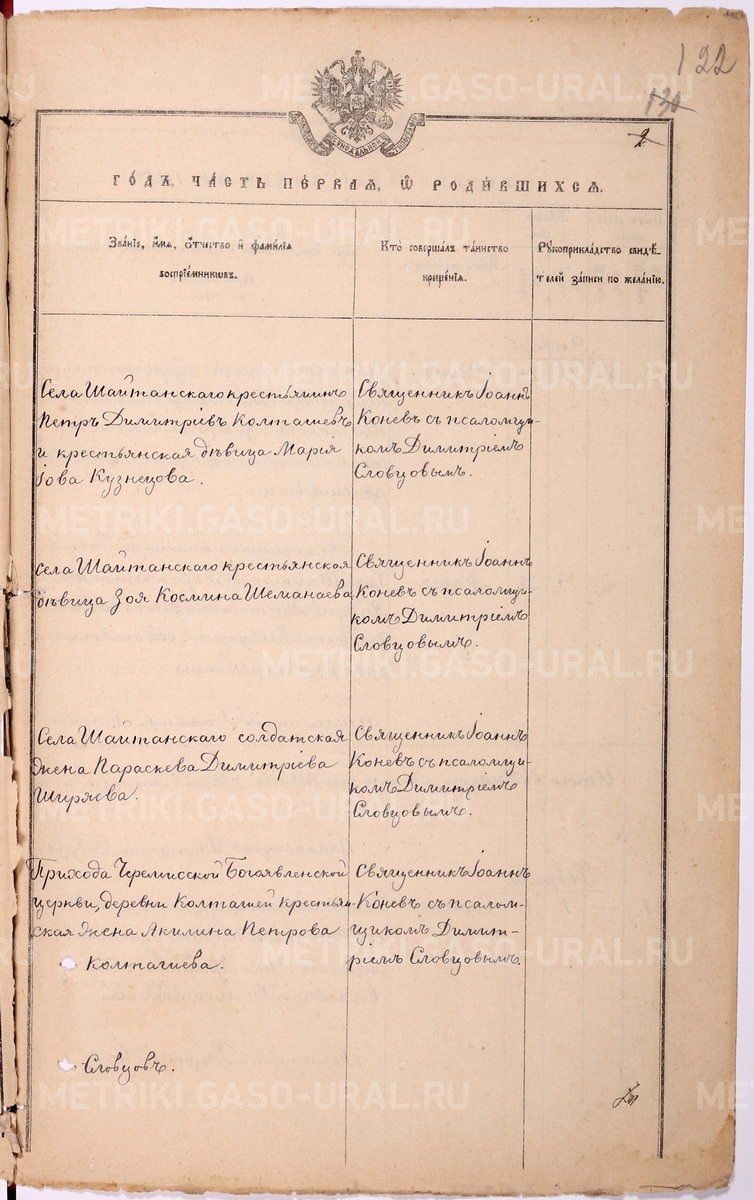 122
130
2
ГОДЪ, ЧАСТЬ ПЕ́РВАѦ, Ѡ҆ РОДИ́ВШИХСѦ.
Зва́нїе, и҆́мѧ, ѻ҆́тчество и҆ фами́лїѧ
воспрїе́мникѡвъ.
Кто̀ соверша́лъ та́инство
креще́нїѧ.
Рꙋкоприкла́дство свидѣ́-
телей за́писи по жела́нїю.
Села Шайтанскаго крестьянинъ
Петръ Димитріевъ Колташевъ
и крестьянская дѣвица Марія
Іова Кузнецова.
Священникъ Іоаннъ
Коневъ съ псаломщи-
комъ Димитріемъ
Словцовымъ.
Села Шайтанскаго крестьянская
дѣвица Зоя Космина Шеманаева
Священникъ Іоаннъ
Коневъ съ псаломщи-
комъ Димитріемъ
Словцовымъ.
Села Шайтанскаго солдатская
жена Параскева Димитріева
Ширяева.
Священникъ Іоаннъ
Коневъ съ псаломщи-
комъ Димитріемъ
Словцовымъ.
Прихода Черемисской Богоявленской
церкви, деревни Колташей крестьян-
ская жена Акилина Петрова
Колташева.
Священникъ Іоаннъ
Коневъ съ псалом-
щикомъ Димит-
ріемъ Словцовымъ.
Словцовъ.
METRIKI.GASO-URAL.RU